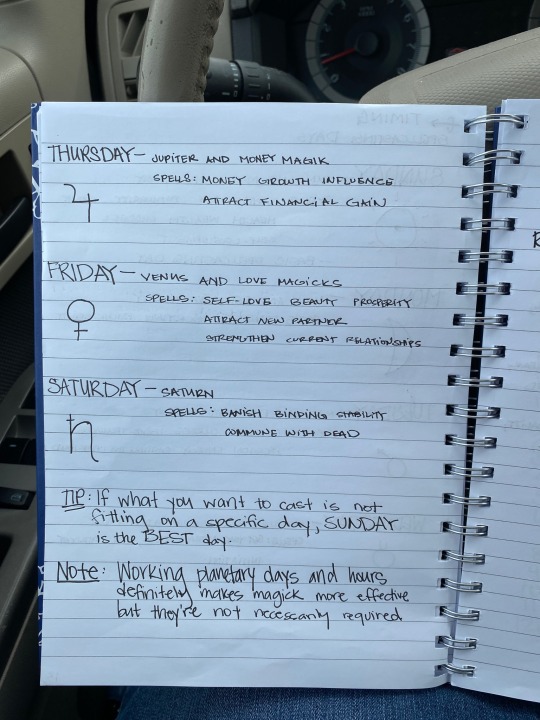 THURSDAY - JUPITER AND MONEY MAGIK
SPELLS: MONEY GROWTH INFLUENCE
♃ ATTRACT FINANCIAL GAIN
FRIDAY - VENUS AND LOVE MAGICKS
SPELLS: SELF-LOVE BEAUTY PROSPERITY
♀ ATTRACT NEW PARTNER
STRENGTHEN CURRENT RELATIONSHIPS
SATURDAY - SATURN
SPELLS: BANISH BINDING STABILITY
♄ COMMUNE WITH DEAD
TIP: If what you want to cast is not
fitting on a specific day, SUNDAY
is the BEST day.
NOTE: Working planetary days and hours
definitely makes magick more effective
but they're not necessarily required